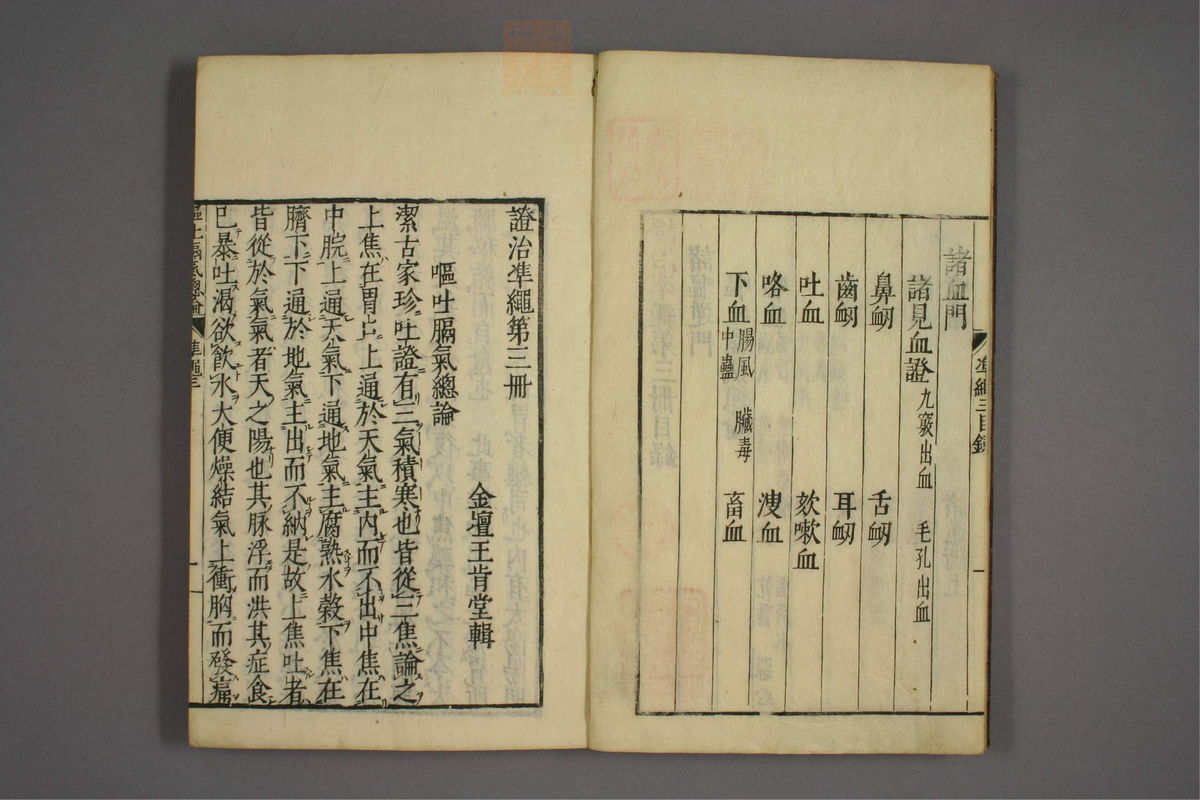 諸血門
諸見血證 九竅出血 毛孔出血
鼻衂 舌衂
齒衂 耳衂
吐血 欬嗽血
咯血 溲血
下血 腸風 臟毒 中蠱 畜血
準繩三目錄
證治準繩第三冊
金壇王肯堂輯
嘔吐膈氣總論
潔古家珍吐證有三氣積寒也皆從三焦論之
上焦在胃口上通於天氣主內而不出中焦在
中脘上通天氣下通地氣主腐熟水穀下焦在
臍下下通於地氣主出而不納是故上焦吐者
皆從於氣氣者天之陽也其脉浮而洪其症食
已暴吐渴欲飲水大便燥結氣上衝胸而發痛
嘔吐膈氣總論 準繩三